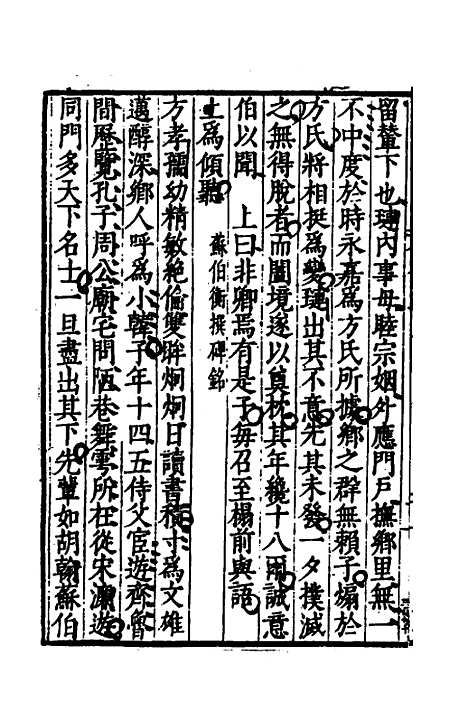 留輦下也璉內事母睦宗姻外應門戶撫鄉里無一
不中度於時永嘉為方氏所據鄉之群無賴子煽於
方氏將相挺為變璉出其不意先其未發一夕撲滅
之無得脫者而闔境遂以奠枕其年纔十八爾誠意
伯以聞 上曰非卿焉有是子每召至榻前與語
上為傾聽 蘇伯衡撰碑銘
方孝孺幼精敏絶倫雙眸炯炯日讀書積寸為文雄
邁醇深鄉人呼為小韓子年十四五侍父宦遊齊魯
間歷覽孔子周公廟宅問陋巷舞雩所在從宋濂遊
同門多天下名士一旦盡出其下先輩如胡翰蘇伯